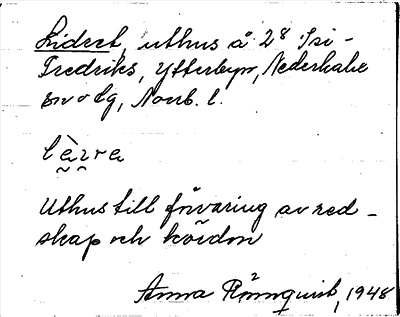 Lideret, uthus å 2⁸ Isi-
Fredriks, Ytterbyn, Nederkalix
sn o lg, Norrb. l.
lèzrɐ
Uthus till förvaring av red-
skap och kördon
Anna Rönnquist, 1948